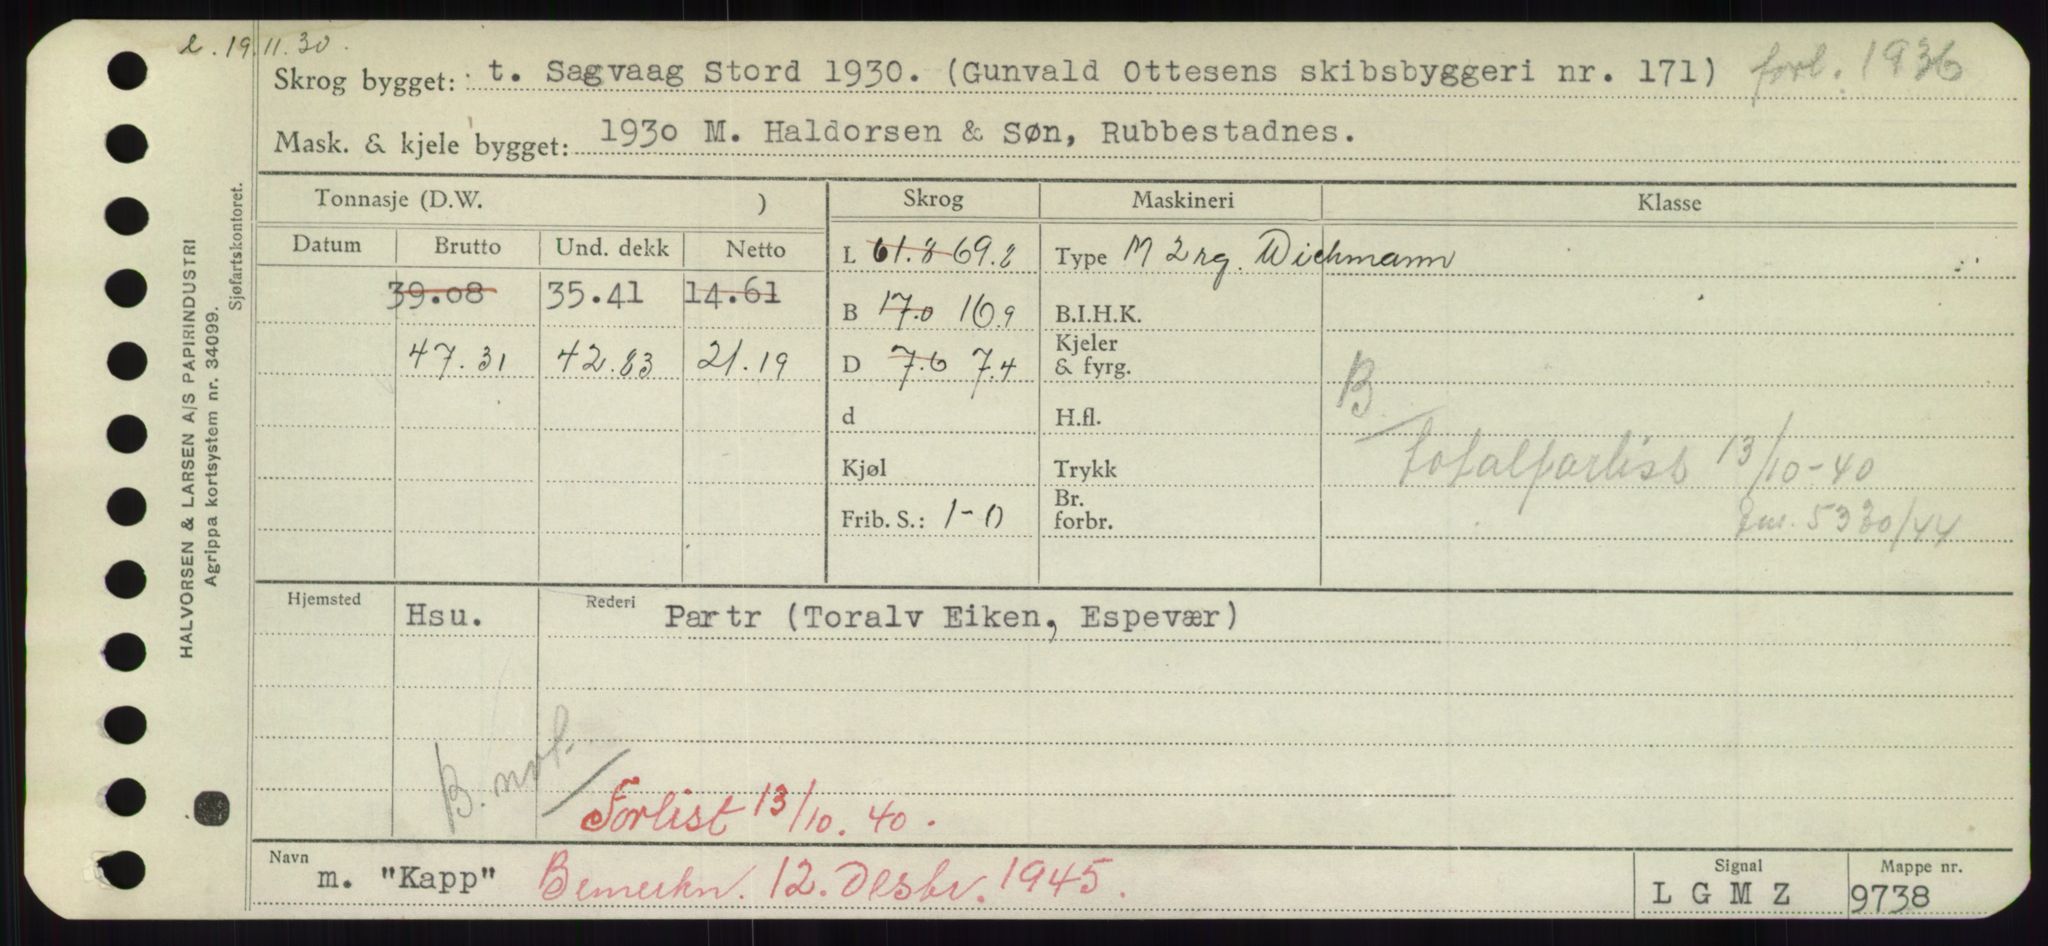 l. 19.11.30.
Skrog bygget: t. Sagvaag Stord 1930. (Gunvald Ottesens skibsbyggeri nr. 171) forl. 1936
Mask. & kjele bygget: 1930 M. Haldorsen & Søn, Rubbestadnes.
Tonnasje (D.W. ) Skrog Maskineri Klasse
Datum Brutto Und. dekk Netto L 61.8 69.8 Type M 2 rg. Wichmann
39.08 35.41 14.61 B 17.0 16.9 B.I.H.K.
47.31 42.83 21.19 D 7.6 7.4 Kjeler & fyrg.
B
d H.fl.
Kjøl Trykk totalforlist 13/10-40
Frib. S.: 1-0 Br. forbr. 5330/44
Hjemsted Hsu. Rederi Partr (Toralv Eiken, Espevær)
B.
Forlist 13/10. 40.
Navn m. "Kapp" Bemerkn. 12. Desbr. 1945. Signal L G M Z Mappe nr. 9738
HALVORSEN & LARSEN A/S PAPIRINDUSTRI
Agrippa kortsystem nr. 34099.
Sjøfartskontoret.